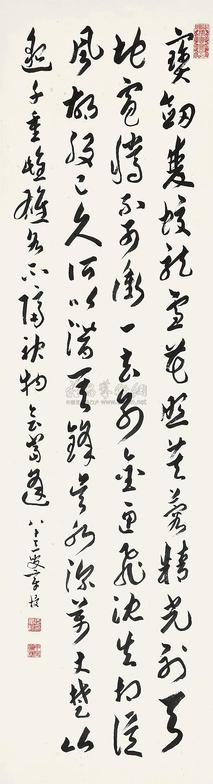 寶劍雙蛟龍雪花照芙蓉精光射天
地雷騰不可衝一去別金匣飛沈失相從
風胡歿已久所以潛其鋒吳水深萬丈楚山
邈千重雌雄終不隔神物會當逢
八十叟